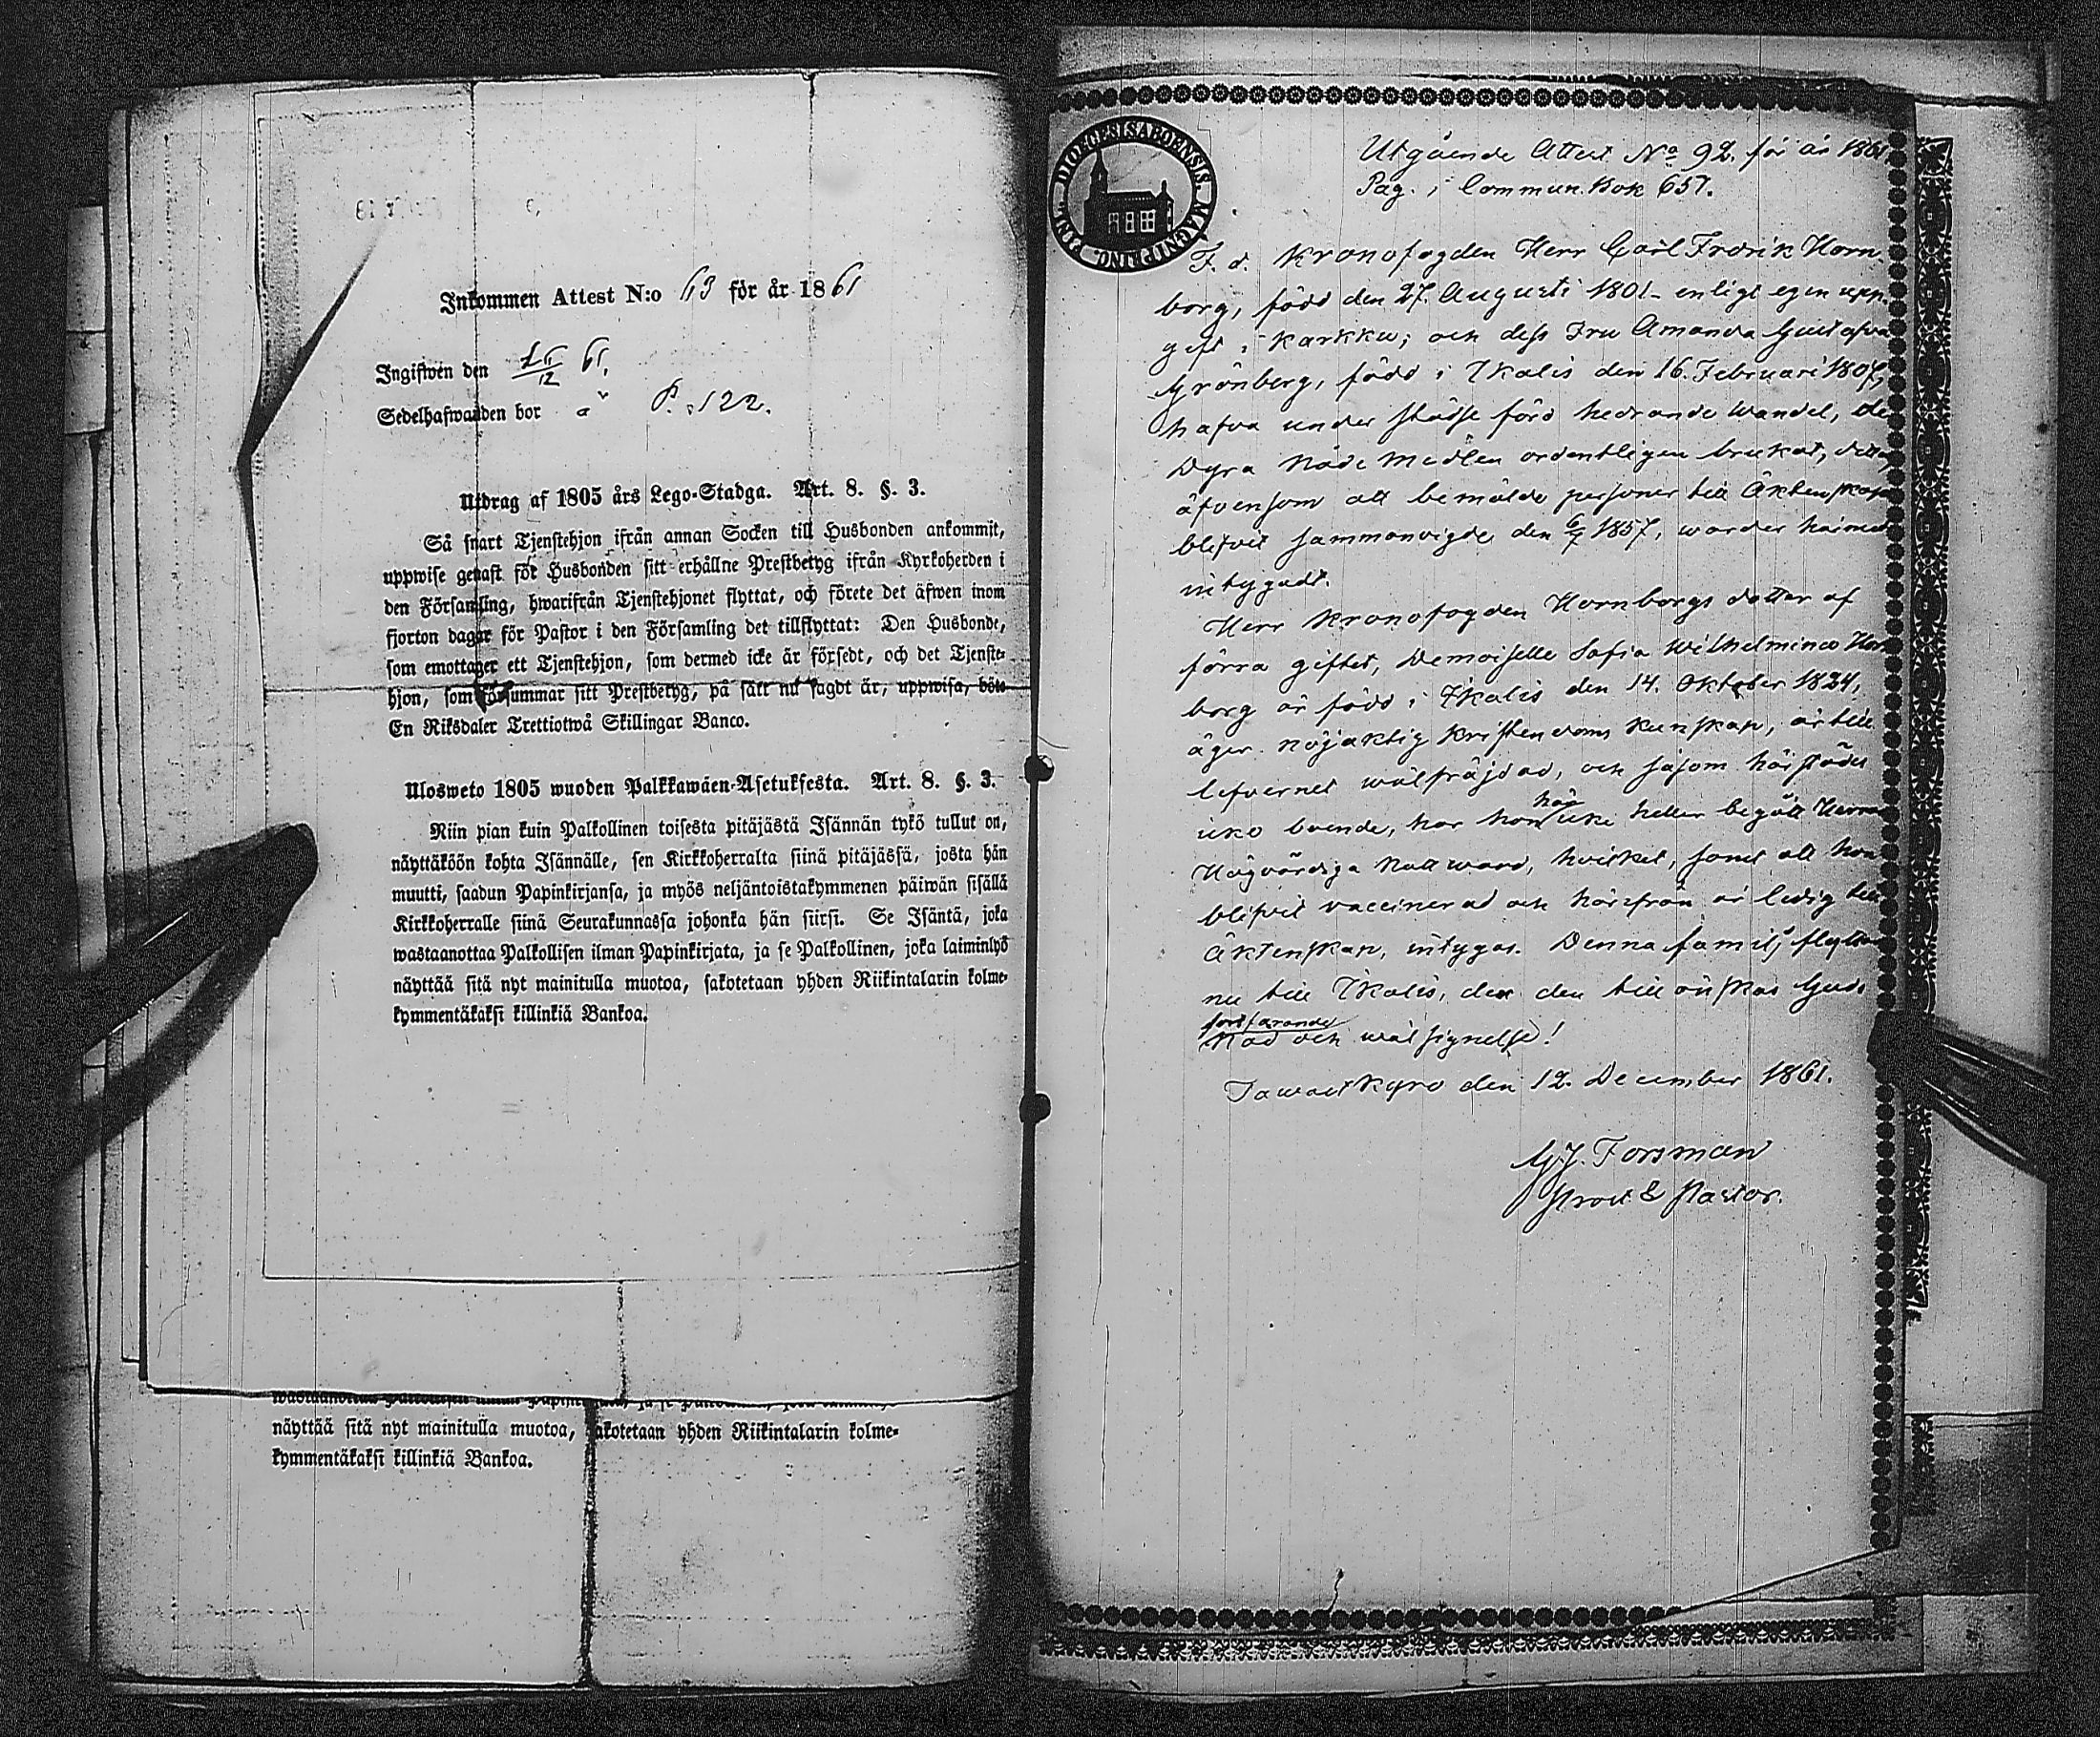 Inkommen Attest N:o 63 för år 1861
Ingifwen den 15/12 61.
Sedelhafwanden bor å P. 122.
Utdrag af 1805 års Lego-Stadga. Art. 8. §. 3.
Så snart Tjenstehjon ifrån annan Socken till Husbonden ankommit,
uppwise genast för Husbonden sitt erhållne Prestbetyg ifrån Kyrkoherden i
den Församling, hwarifrån Tjenstehjonet flyttat, och förete det äfwen inom
fjorton dagar för Pastor i den Församling det tillflyttat: Den Husbonde,
som emottager ett Tjenstehjon, som dermed icke är försedt, och det Tjenste-
hjon, som försummar sitt Prestbetyg, på sätt nu sagdt är, uppwisa, böte
En Riksdaler Trettiotwå Skillingar Banco.
Ulosweto 1805 wuoden Palkkawäen-Asetuksesta. Art. 8. §. 3.
Niin pian kuin Palkollinen toisesta pitäjästä Isännän tykö tullut on,
näyttäköön kohta Isännälle, sen Kirkkoherralta siinä pitäjässä, josta hän
muutti, saadun Papinkirjansa, ja myös neljäntoistakymmenen päiwän sisällä
Kirkkoherralle siinä Seurakunnassa johonka hän siirsi. Se Isäntä, joka
wastaanottaa Palkollisen ilman Papinkirjata, ja se Palkollinen, joka laiminlyö
näyttää sitä nyt mainitulla muotoa, sakotetaan yhden Riikintalarin kolme-
kymmentäkaksi killinkiä Bankoa.
näyttää sitä nyt mainitulla muotoa, sakotetaan yhden Riikintalarin kolme-
kymmentäkaksi killinkiä Bankoa.
DIOECESIS ABOENSIS. MAGNI PRINC. FINL.
Utgående Attest No 92. för år 1861
Pag. i Commun. Bok 657.
F. d. Kronofogden Herr Carl Fredrik Horn-
borg, född den 27. Augusti 1801 - enligt egen upp-
gift i Karkku; och dess Fru Amanda Gustafva
Grönberg, född i Ikalis den 16. Februari 1807,
hafva under städse förd hedrande wandel, de
Dyra Nåde Medlen ordentligen brukat, detta,
äfvensom att bemälde personer till Äktenskap
blifvit sammanvigde den 6/7 1857, warder härmed
intygadt.
Herr Kronofogden Hornborgs dotter af
förra giftet, Demoiselle Sofia Wilhelmina Horn
borg är född i Ikalis den 14. Oktober 1824,
äger nöjaktig kristendoms kunskap, är till
lefvernet wälfräjdad, och såsom härstädes
icke boende, har hon här icke heller begått Herrans
Högvördiga Nattward, hvilket, samt att hon
blifvit vaccinerad och härifrån är ledig till
Äktenskap, intygas. Denna familj flyttar
nu till Ikalis, der den till önskas Guds
fortfarande
Nåd och wälsignelse!
Tawastkyro den 12. December 1861.
G. J. Forsman
Prost & Pastor.